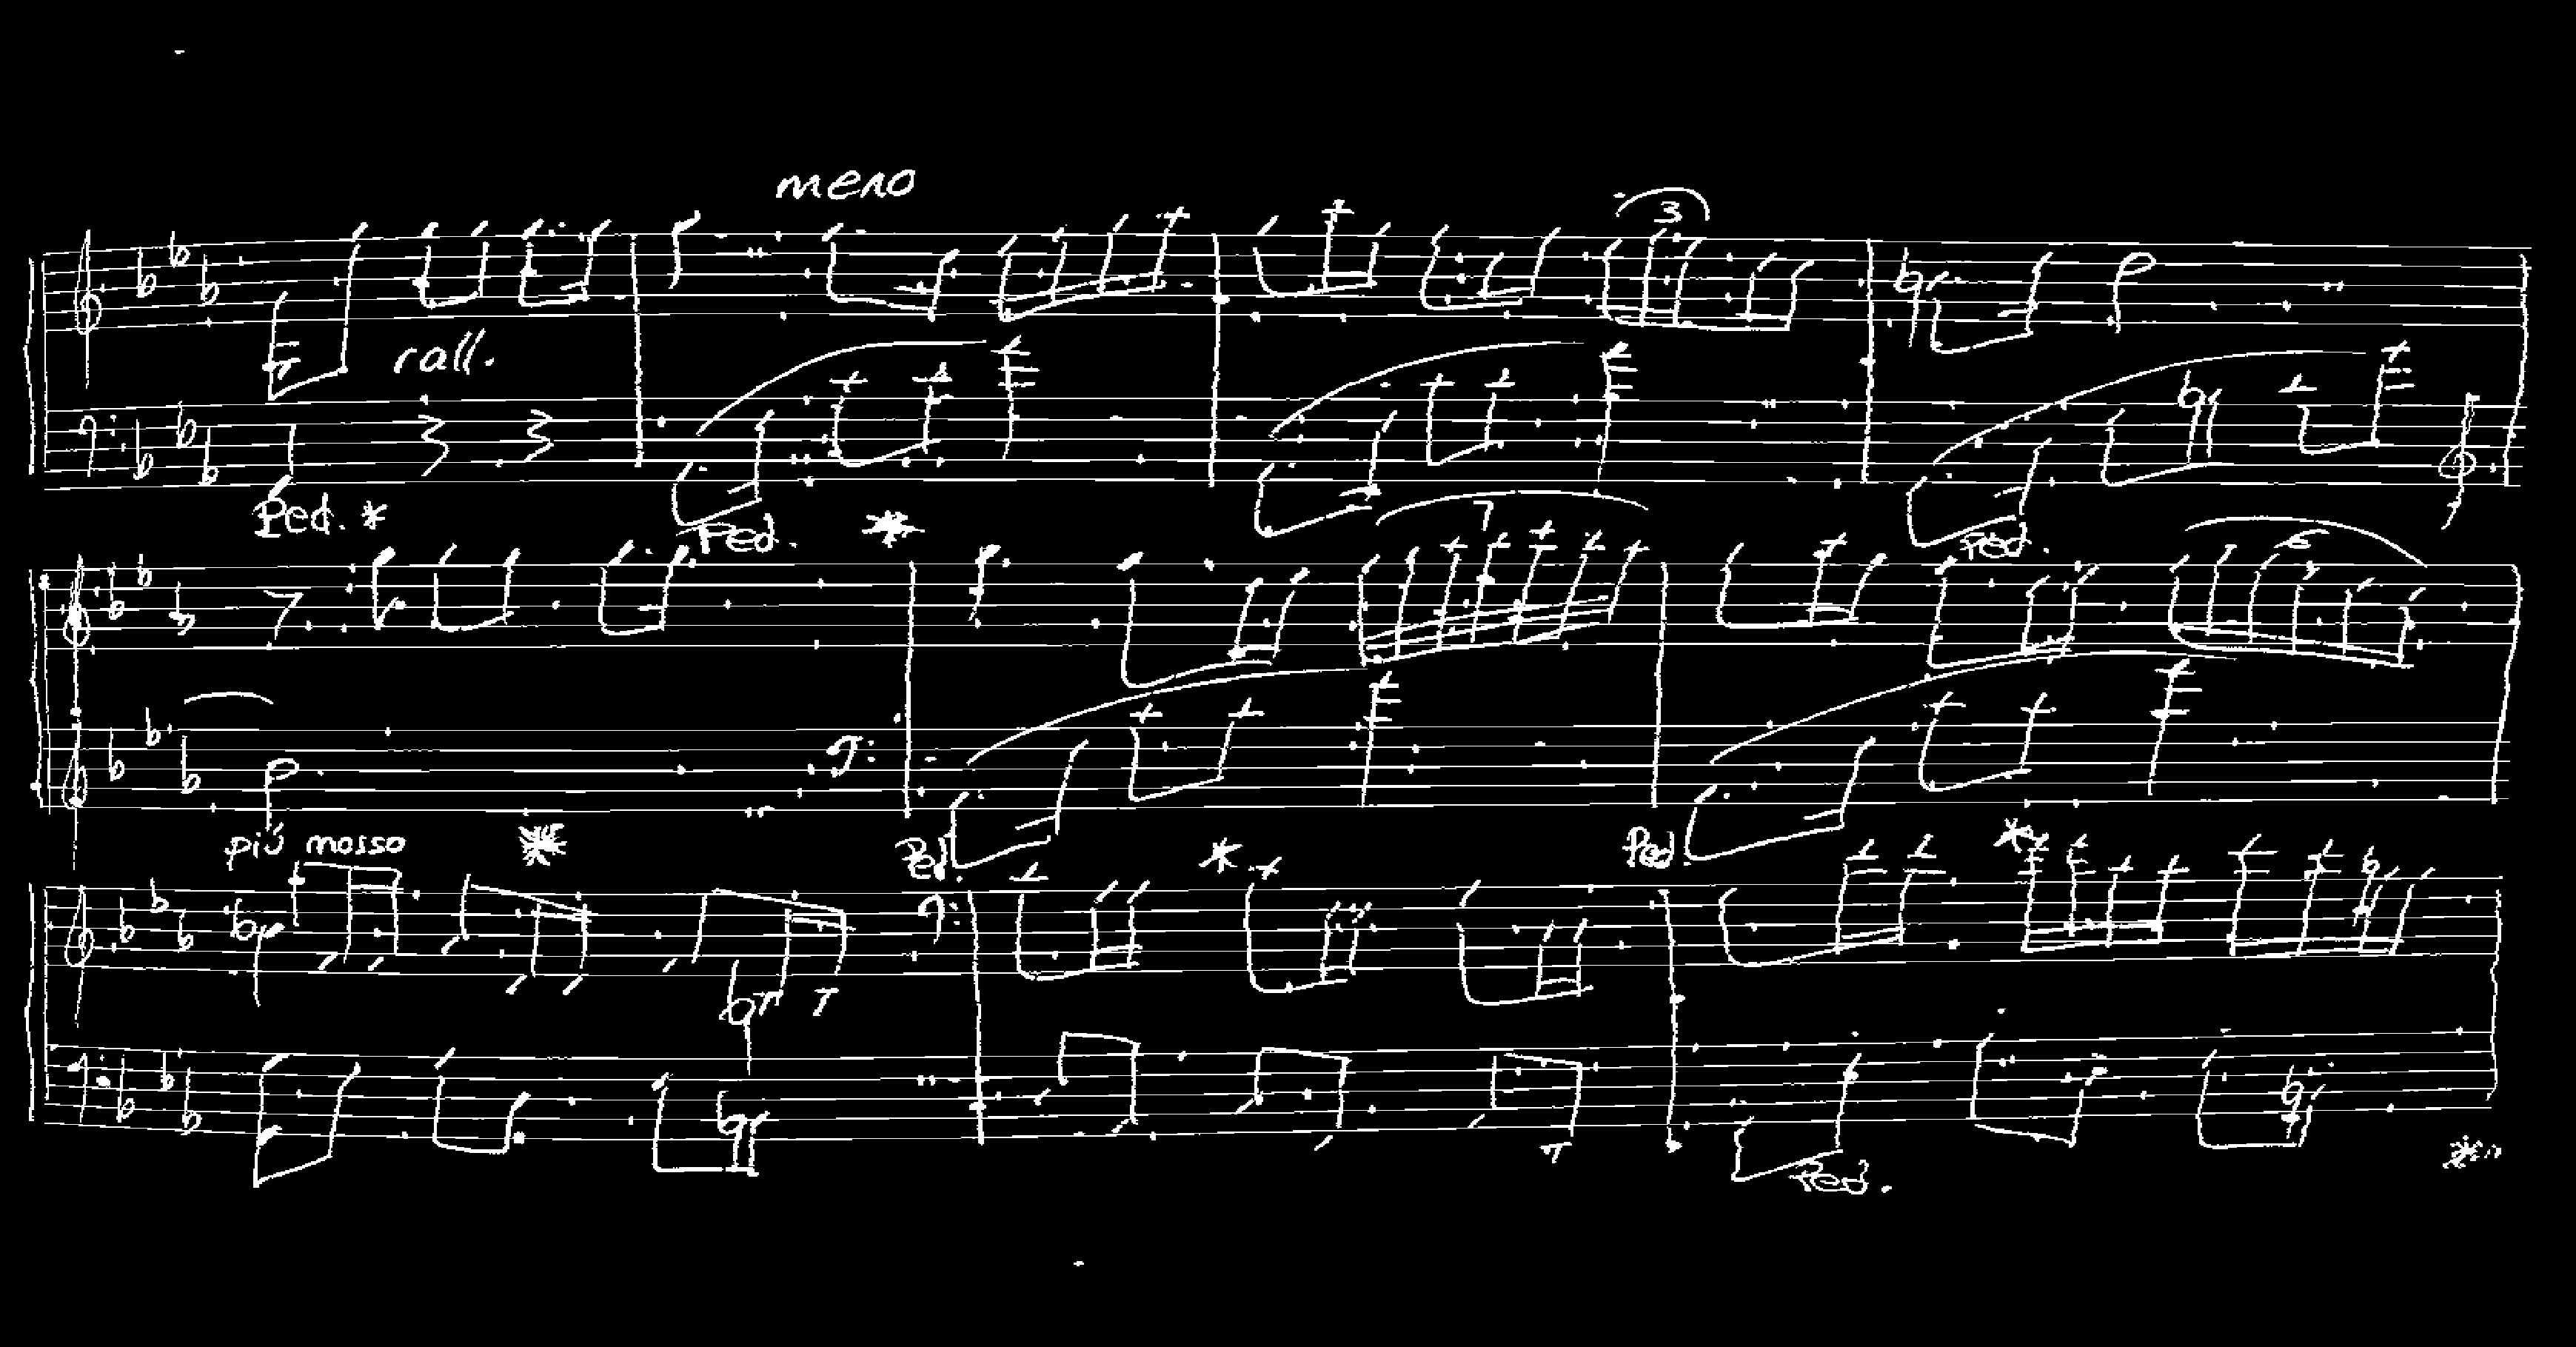 meno
3
rall.
Ped. *
Ped. *
Ped.
7
6
più mosso
*
Ped. *
Ped. *
Ped. *